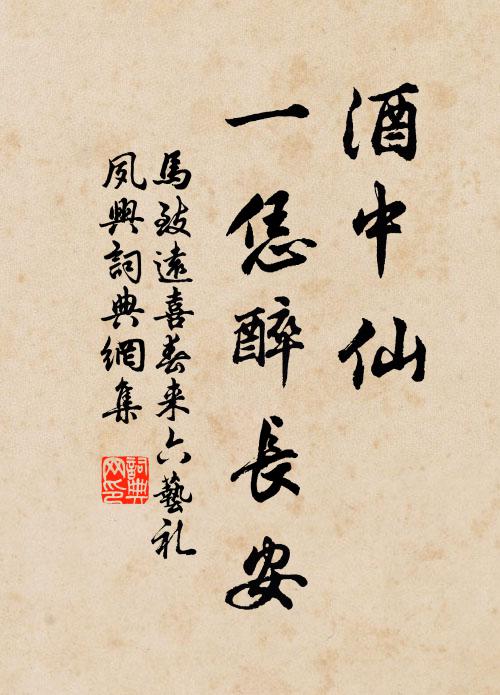 酒中仙
一恁醉長安
馬致遠喜春来六藝礼
夙興詞典網集
詞典网印